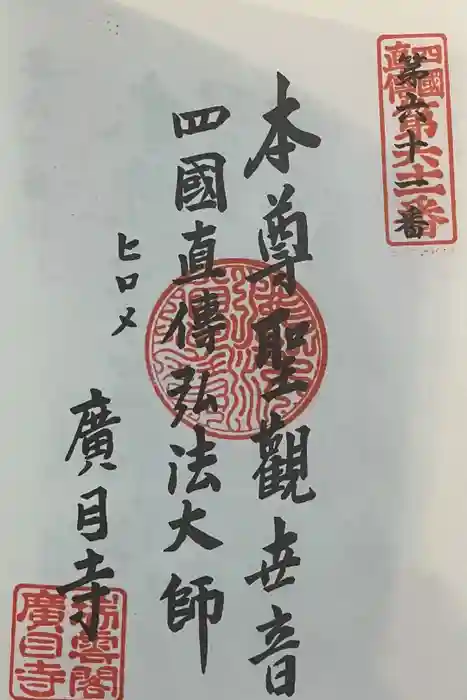 四國直傳
第六十二番
第六十二番
本尊聖觀世音
四國直傳弘法大師
ヒロメ
廣目寺
瑞雲閣
廣目寺